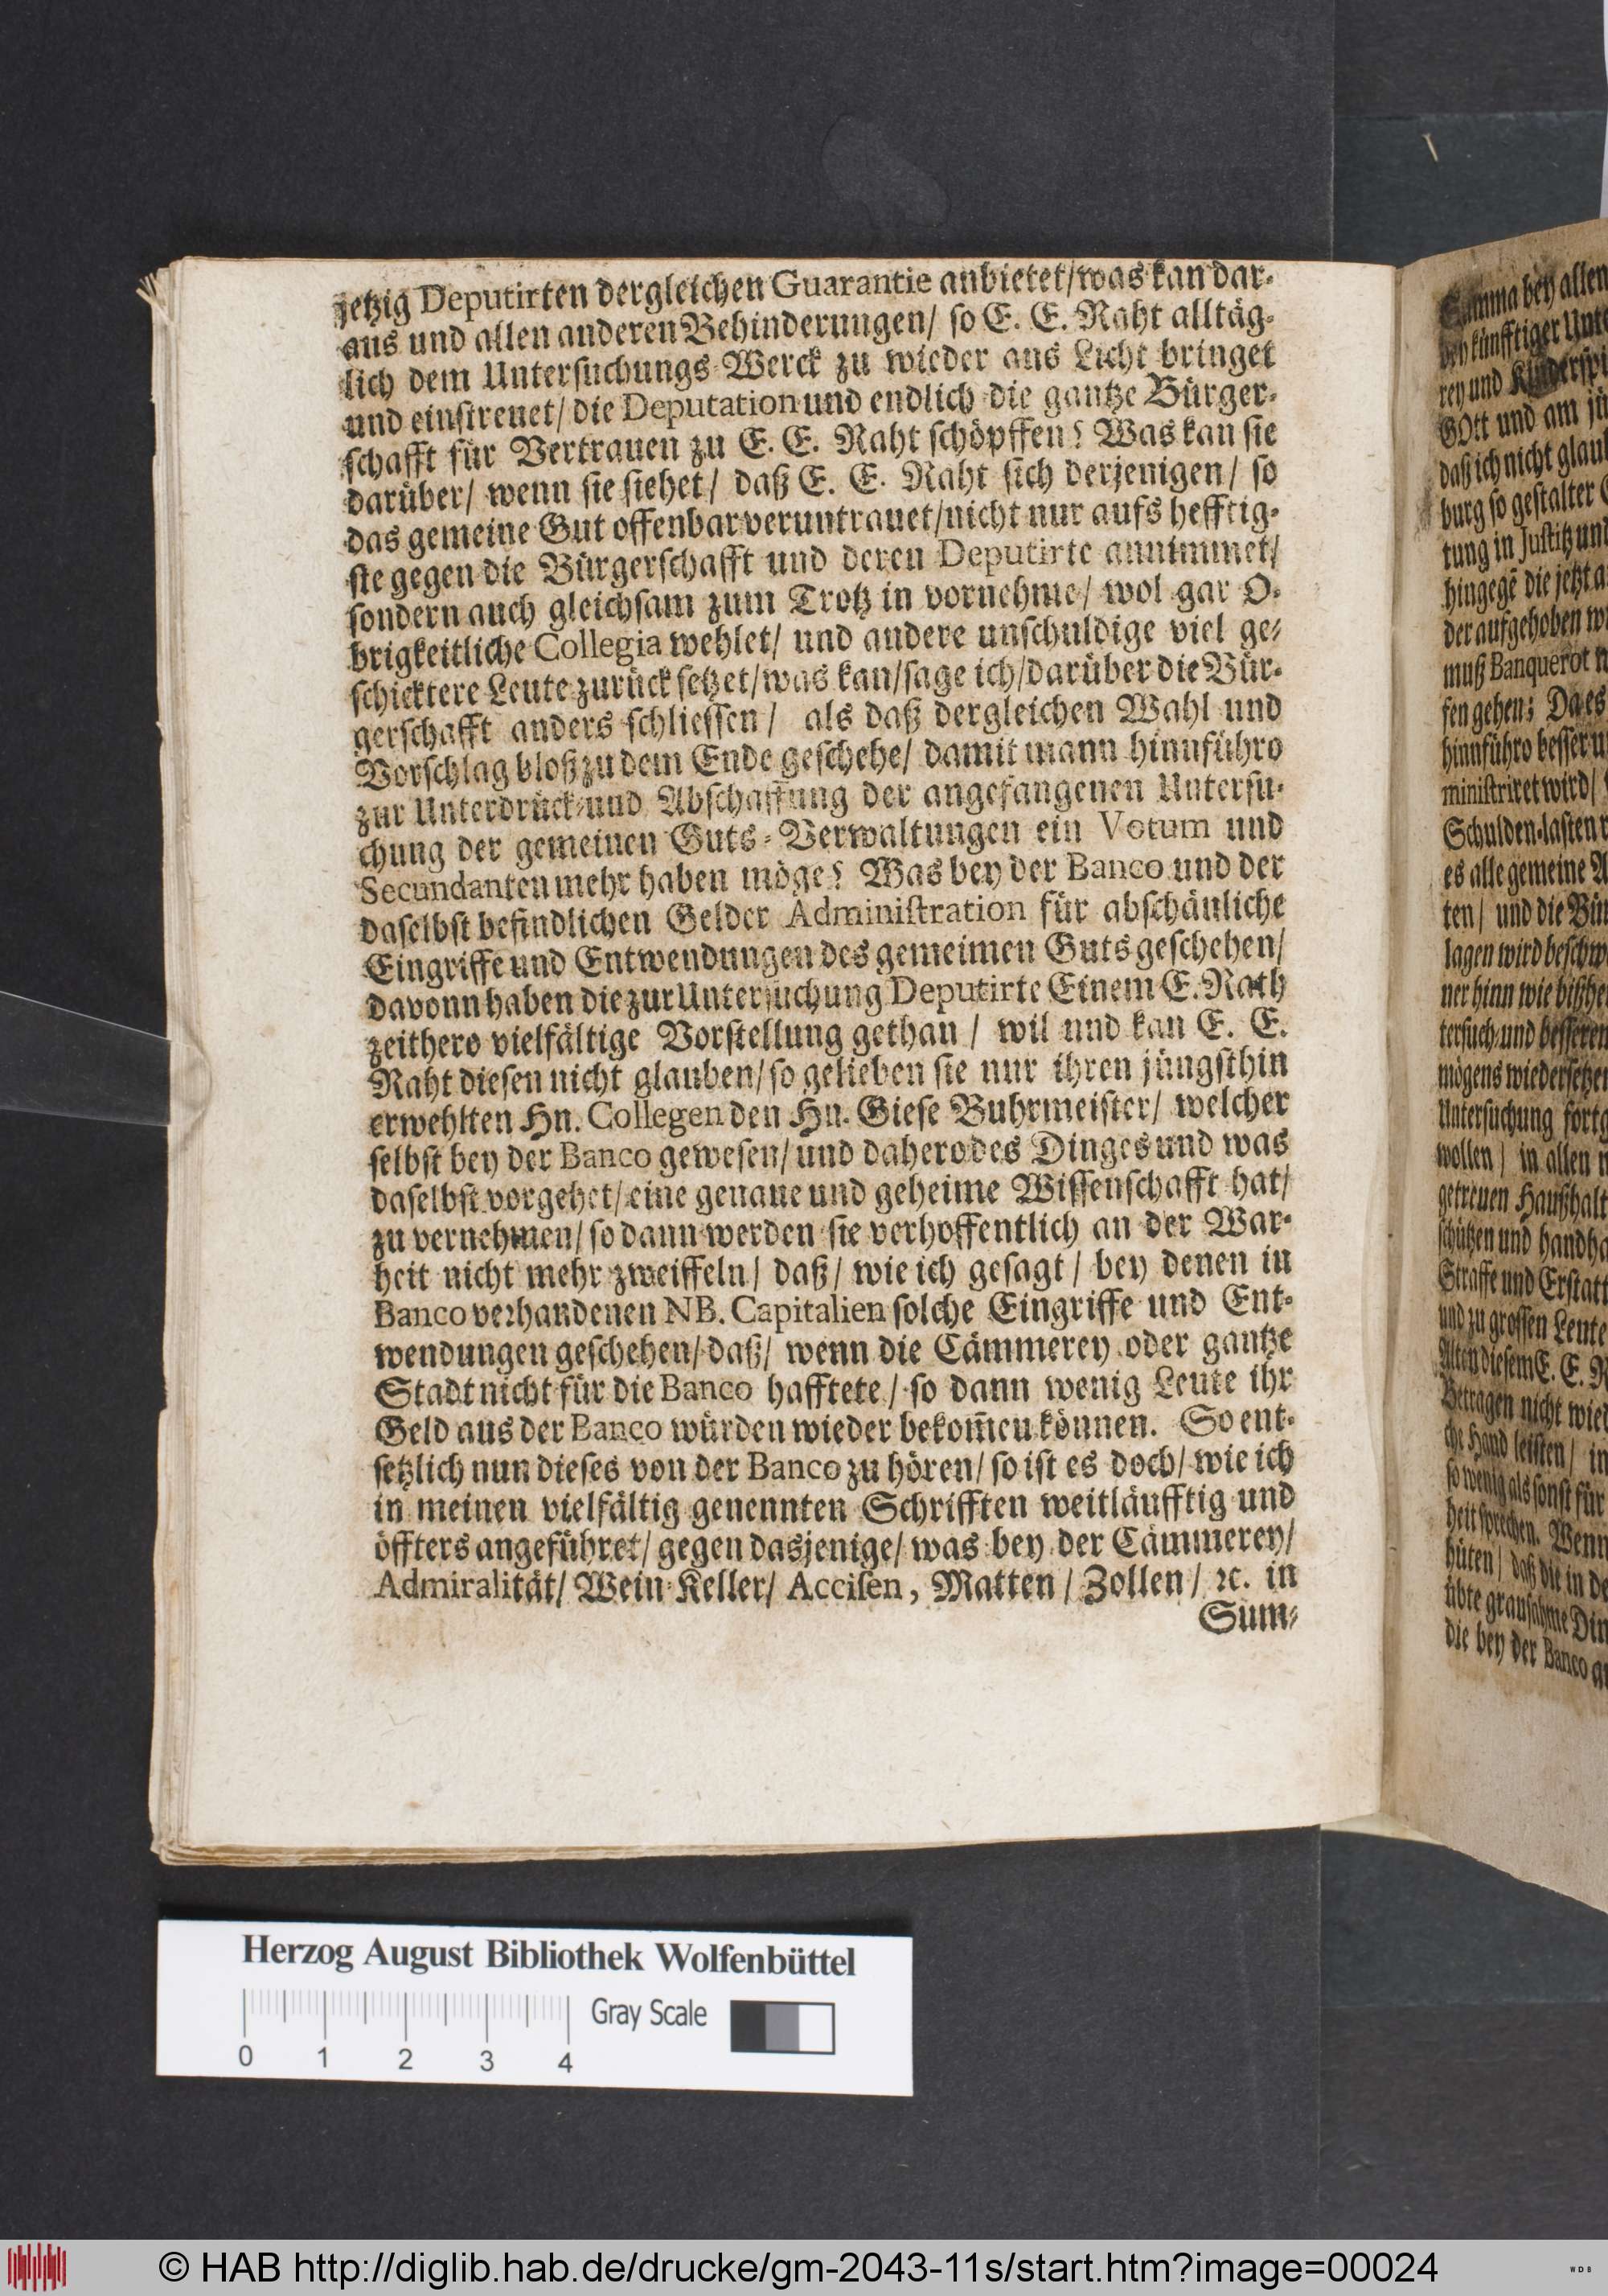 jetzig Deputirten dergleichen Guarantie anbietet/was kan dar-
aus und allen anderen Behinderungen/ so E. E. Raht alltäg-
lich dem Untersuchungs-Werck zu wieder ans Licht bringet
und einstreuet/ die Deputation und endlich die gantze Bürger-
schafft für Vertrauen zu E. E. Raht schöpffen? Was kan sie
darüber/ wenn sie siehet/ daß E. E. Raht sich derjenigen/ so
das gemeine Gut offenbar veruntrauet/nicht nur aufs hefftig-
ste gegen die Bürgerschafft und deren Deputirte annimmet/
sondern auch gleichsam zum Trotz in vornehme/ wol gar O-
brigkeitliche Collegia wehlet/ und andere unschuldige viel ge-
schicktere Leute zurück setzet/was kan/sage ich/darüber die Bür-
gerschafft anders schliessen/ als daß dergleichen Wahl und
Vorschlag bloß zu dem Ende geschehe/ damit mann hinnführo
zur Unterdrück-und Abschaffung der angefangenen Untersu-
chung der gemeinen Guts-Verwaltungen ein Votum und
Secundanten mehr haben möge? Was bey der Banco und der
daselbst befindlichen Gelder Adminiſtration für abschäuliche
Eingriffe und Entwendungen des gemeimen Guts geschehen/
davonn haben die zur Untersuchung Deputirte Einem E. Rath
zeithero vielfältige Vorstellung gethan / wil und kan E. E.
Raht diesen nicht glauben/so gelieben sie nur ihren jüngsthin
erwehlten Hn. Collegen den Hn. Giese Buhrmeister/ welcher
selbst bey der Banco gewesen/ und dahero des Dinges und was
daselbst vorgehet/ eine genaue und geheime Wissenschafft hat/
zu vernehmen/ so dann werden sie verhoffentlich an der War-
heit nicht mehr zweiffeln/ daß/ wie ich gesagt/ bey denen in
Banco verhandenen NB. Capitalien solche Eingriffe und Ent-
wendungen geschehen/ daß/ wenn die Cämmerey oder gantze
Stadt nicht für die Banco hafftete/ so dann wenig Leute ihr
Geld aus der Banco würden wieder bekom̃en können. So ent-
setzlich nun dieses von der Banco zu hören/ so ist es doch/ wie ich
in meinen vielfältig genennten Schrifften weitläufftig und
öffters angeführet/ gegen dasjenige/ was bey der Cämmerey/
Admiralität/ Wein-Keller/ Acciſen, Matten/ Zollen/ ꝛc. in
Sum-
Summa bey allen
künfftiger
rey und
GOtt und am
daß ich nicht
burg so gestalter
tung in Justitz
hingegẽ die jetzt
der aufgehoben
muß Banquerot
fen gehen; Da es
hinnführo besser
ministriret wird/
Schulden-lasten
es alle gemeine
ten/ und die
lagen wird
ner hinn wie
tersuch-und besseren
mögens wiedersetzen
Untersuchung
wollen/ in allen
getreuen
schützen und
Straffe und
und zu grossen Leute
Alten diesem E. E.
Betragen nicht
che Hand leisten/ in
so wenig als sonst für
heit sprechen. Wenn
hüten/ daß die in
übte grausahme
die bey der Banco
Herzog August Bibliothek Wolfenbüttel
Gray Scale
0 1 2 3 4
© HAB http://diglib.hab.de/drucke/gm-2043-11s/start.htm?image=00024
WDB